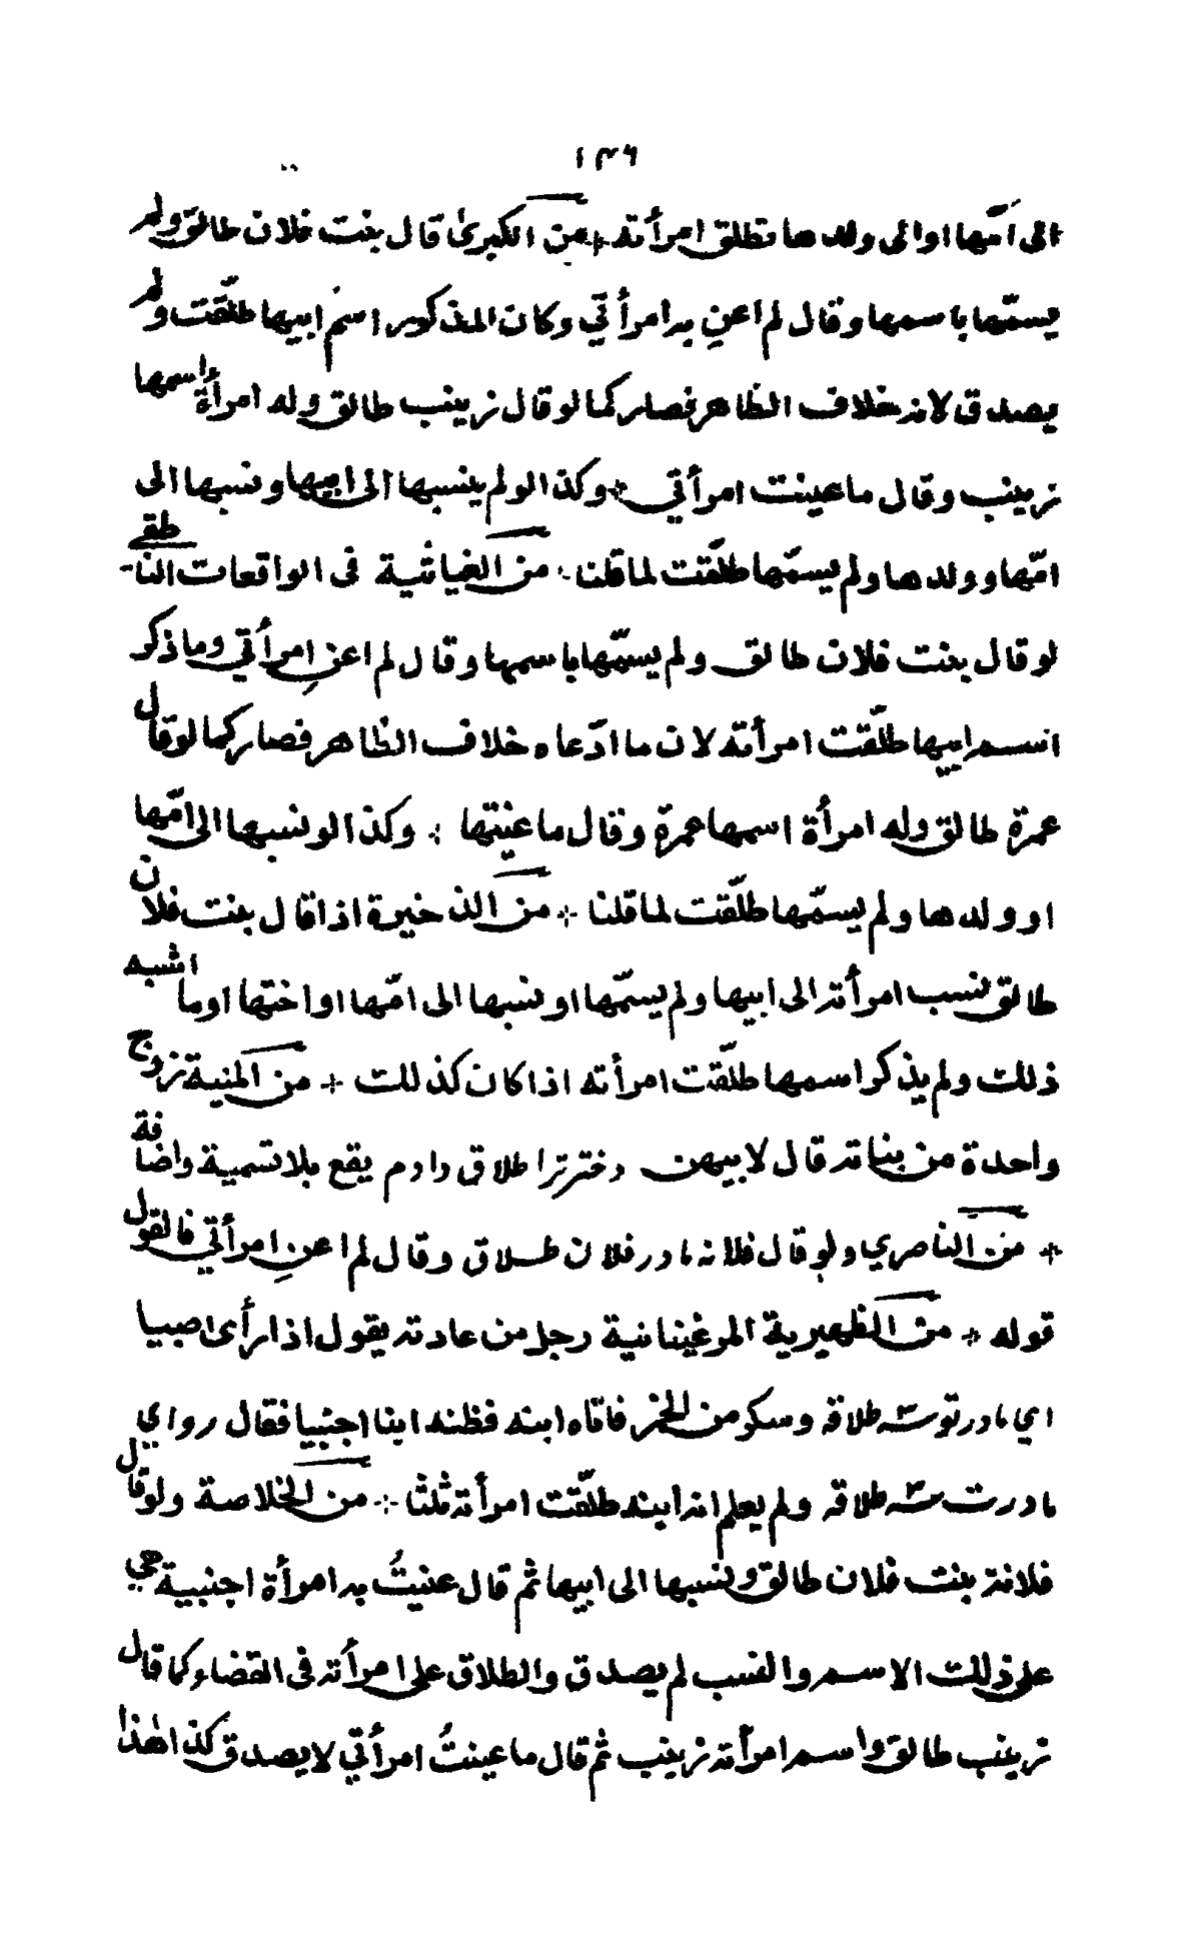 ١٣٦
الى امّها او الى ولدها تطلق امرأته + من الكبرىٰ قال بنت فلان طالق ولم
يسمّها باسمها وقال لم اعنِ به امرأتي وكان المذكور اسم ابيها طلّقت ولم
يصدق لانه خلاف الظاهر فصار كما لو قال زينب طالق وله امرأة اسمها
زينب وقال ما عينت امرأتي + وكذا لو لم ينسبها الى ابيها ونسبها الى
امّها وولدها ولم يسمّها طلّقت لما قلنا + من الغياثية فى الواقعات الناطقي
لو قال بنت فلان طالق ولم يسمّها باسمها وقال لم اعنِ امرأتي وما ذكر
اسم ابيها طلّقت امرأته لان ما ادّعاه خلاف الظاهر فصار كما لو قال
عمرة طالق وله امرأة اسمها عمرة وقال ما عنيتها + وكذا لو نسبها الى امّها
او ولدها ولم يسمّها طلّقت لما قلنا + من الذخيرة اذا قال بنت فلان
طالق نسب امرأته الى ابيها ولم يسمّها او نسبها الى امّها او اختها او ما اشبه
ذلك ولم يذكر اسمها طلّقت امرأته اذا كان كذلك + من المنية زوج
واحدة من بناته قال لابيهن دختر ترا طلاق دادم يقع بلا تسمية واضافة
+ من الناصري ولو قال فلانه مادر فلان طلاق وقال لم اعنِ امرأتي فالقول
قوله + من الظهيرية المرغينانية رجل من عادته يقول اذا رأى صبيا
اي مادر توسه طلاقه وسكر من الخمر فاتاه ابنه فظنه ابنا اجنبيا فقال رو اي
مادرت سه طلاقه ولم يعلم انه ابنه طلّقت امرأته ثلثا + من الخلاصة ولو قال
فلانة بنت فلان طالق ونسبها الى ابيها ثم قال عنيتُ به امرأة اجنبية هي
على ذلك الاسم والنسب لم يصدق والطلاق على امرأته فى القضاء كما قال
زينب طالق واسم امرأته زينب ثم قال ما عينتُ امرأتي لا يصدق كذا هٰذا